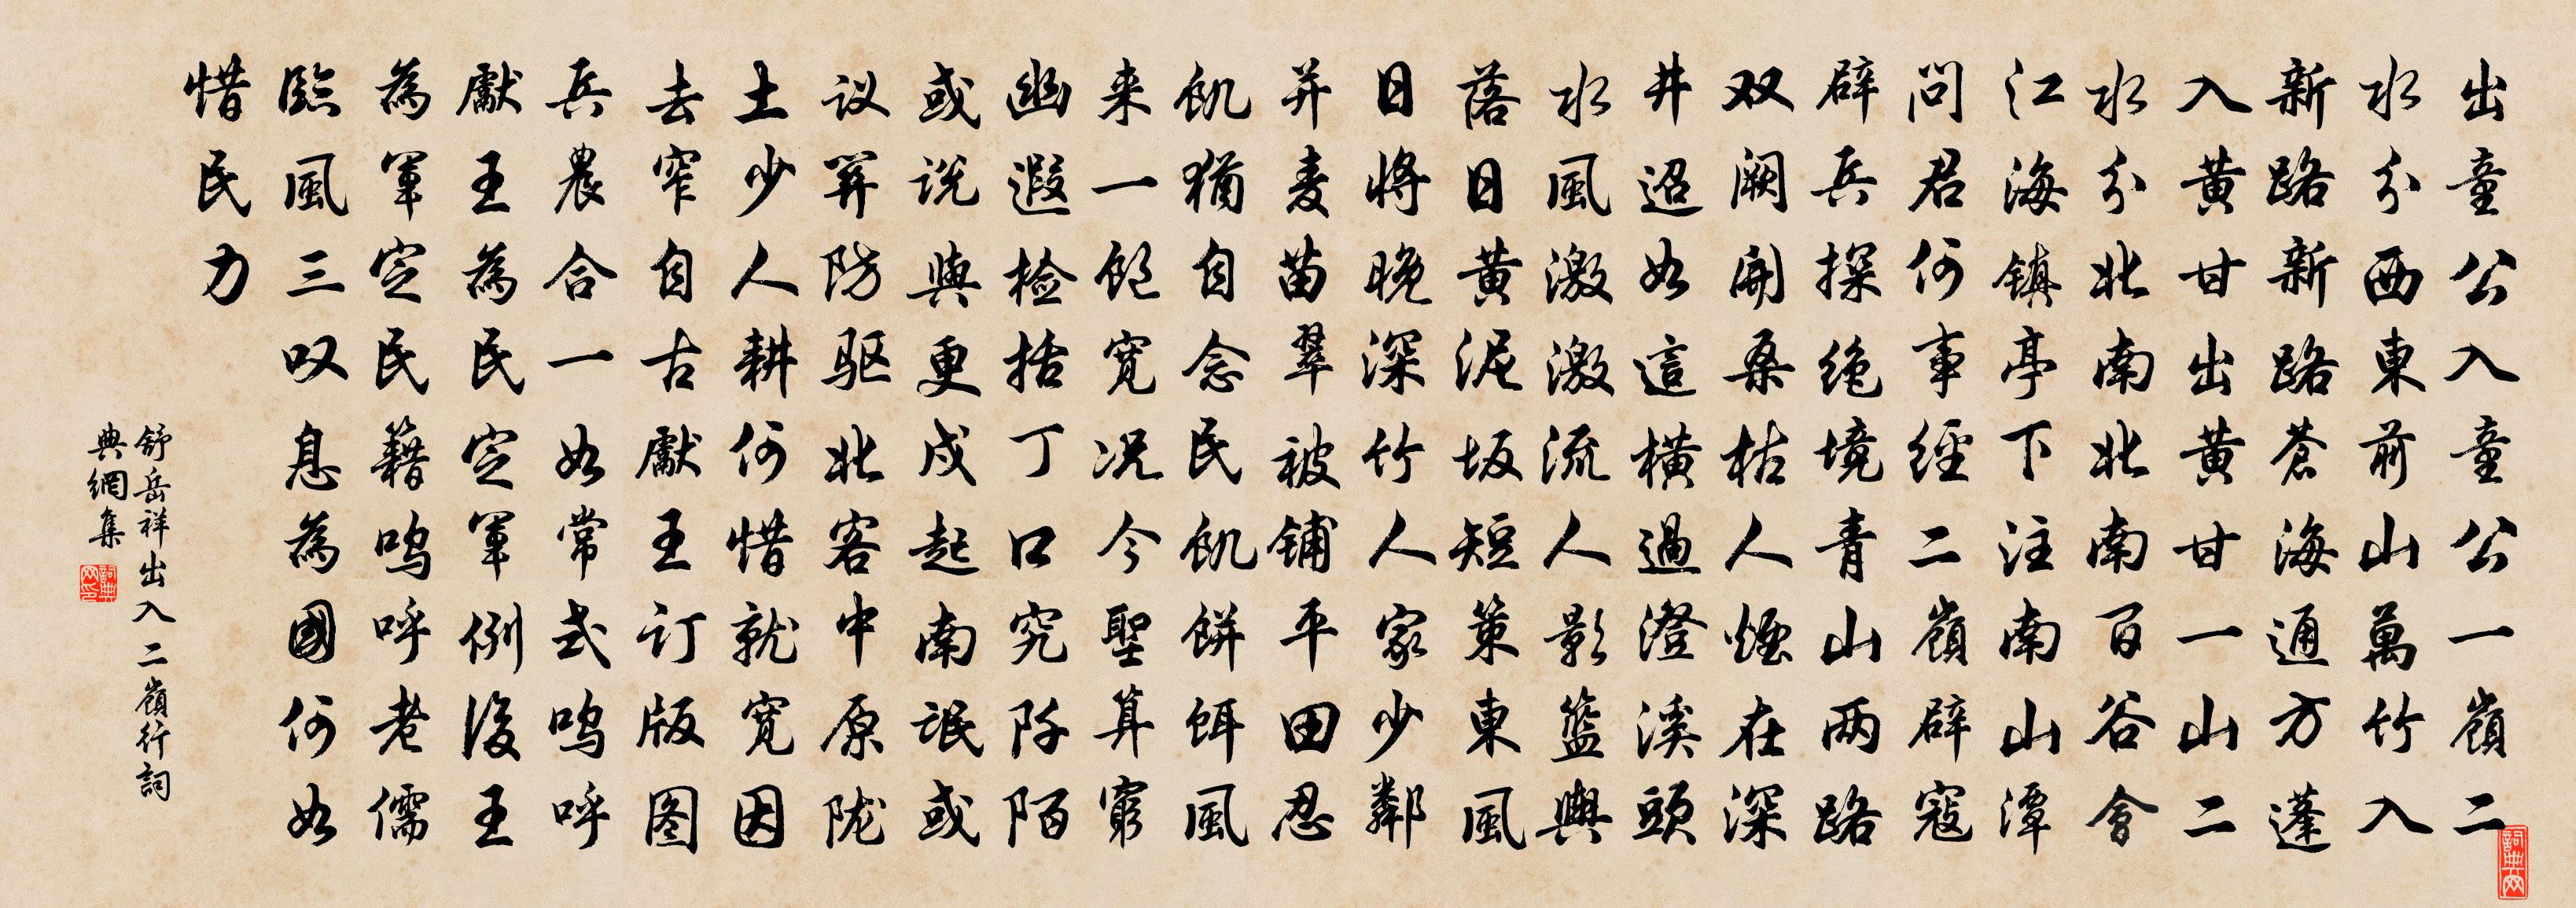 出童公入童公一嶺二
水分西東前山萬竹入
新路新路蒼海通方蓬
入黄甘出黄甘一山二
水分北南北南百谷會
江海鎮亭下注南山潭
問君何事經二嶺辟寇
辟兵探绝境青山兩路
双阙開桑枯人煙在深
井迢如這橫過澄溪頭
水風激激流人影籃輿
落日黄泥坂短策東風
日將晚深竹人家少鄰
并麦苗翠被铺平田忍
飢猶自念民飢餅餌風
来一飽宽况今聖算窮
幽遐检括丁口究阡陌
或说與更戍起南氓或
议開防驱北客中原陇
土少人耕何惜就宽因
去窄自古獻王订版图
兵農合一如常式鸣呼
獻王為民定軍例後王
為軍定民籍鸣呼老儒
臨風三叹息為國何如
惜民力
舒岳祥出入二嶺行詞
典網集
詞典网